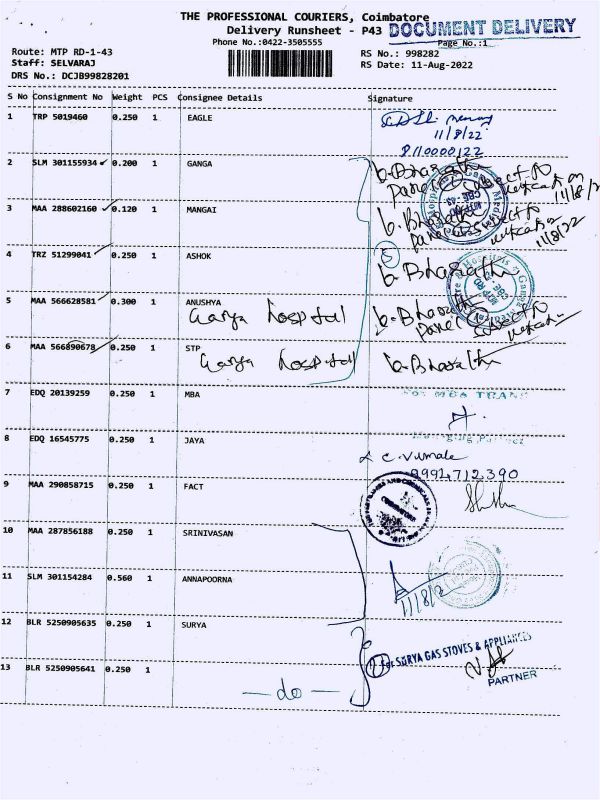 THE PROFESSIONAL COURIERS, Coimbatore
Delivery Runsheet - P43
DOCUMENT DELIVERY
Phone No.:0422-3505555
Page No.:1
Route: MTP RD-1-43
Staff: SELVARAJ
DRS No.: DCJB99828201
RS No.: 998282
RS Date: 11-Aug-2022
S No Consignment No Weight PCS Consignee Details Signature
1 TRP 5019460 0.250 1 EAGLE
11/8/22
8110000122
2 SLM 301155934 0.200 1 GANGA b.Bharath
11/8/2
3 MAA 288602160 0.120 1 MANGAI b.Bharath
11/8/22
4 TRZ 51299041 0.250 1 ASHOK b.Bharath
5
5 MAA 566628581 0.300 1 ANUSHYA b.Bharath
Ganga hospital
6 MAA 566890678 0.250 1 STP b.Bharath
Ganga hospital
7 EDQ 20139259 0.250 1 MBA
For MBA TRANS
Managing Partner
8 EDQ 16545775 0.250 1 JAYA
C. Vumale
9994712390
9 MAA 290858715 0.250 1 FACT
10 MAA 287856188 0.250 1 SRINIVASAN
11 SLM 301154284 0.560 1 ANNAPOORNA
11/8/2
12 BLR 5250905635 0.250 1 SURYA
for SURYA GAS STOVES & APPLIANCES
13 BLR 5250905641 0.250 1
— do —
PARTNER